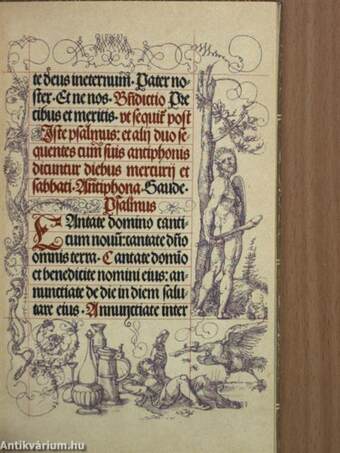 te deus ineternum̄. Pater no-
ster. Et ne nos. Bn̄dictio Pre
cibus et meritis. vt sequit̄ post
Iste psalmus: et alij duo se-
quentes cum̄ suis antiphonis
dicuntur diebus mercurij et
sabbati. Antiphona. Gaude.
Psalmus
CAntate domino canti
cum nouū: cantate dn̄o
omnis terra. Cantate domīo
et benedicite nomini eius: an-
nunctiate de die in diem salu
tare eius. Annunctiate inter
Antikvárium.hu